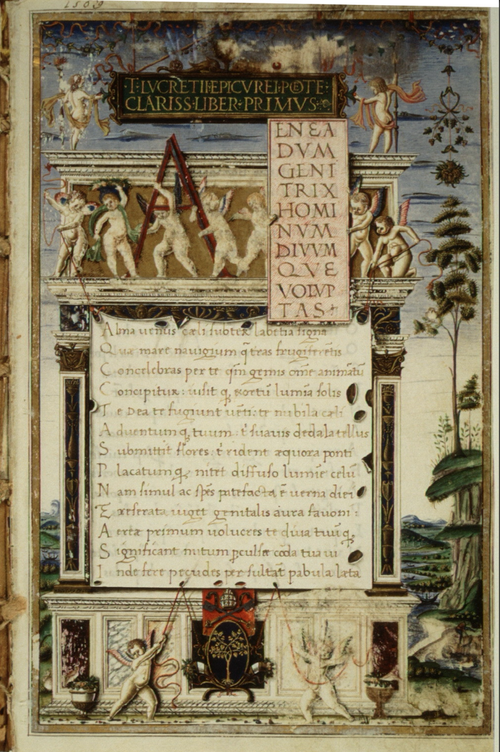 T·LVCRETII·EPICVREI·POTE·
CLARISS·LIBER·PRIMVS·
A
ENEA
DVM
GENI
TRIX
HOMI
NVM
DIVVM
QVE
VOLVP
TAS
Alma uenus cæli subter labētia signa
Quę mare nauigium q; tras frugiferētis
Concelebras per te qm̄ genus om̄e animātū
Concipitur uisit q; exortū lumīa solis
Te Dea te fugiunt uēti te nubila cæli
Aduentumq; tuum t suauis dedala tellus
Submittit flores t rident æquora ponti
Placatumq; nitet diffuso lumīe celū
Nam simul ac spēs patefacta ē uerna diei
Et reserata uiget genitalis aura fauoni
Aeriæ primum uolucres te diua tuūq;
Significant initum pculsæ corda tua ui
Inde fere pecudes per sultāt pabula læta